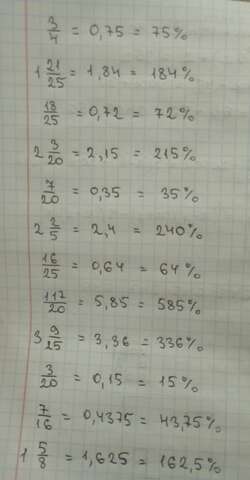 3/4 = 0,75 = 75%
1 21/25 = 1,84 = 184%
18/25 = 0,72 = 72%
2 3/20 = 2,15 = 215%
7/20 = 0,35 = 35%
2 2/5 = 2,4 = 240%
16/25 = 0,64 = 64%
117/20 = 5,85 = 585%
3 9/25 = 3,36 = 336%
3/20 = 0,15 = 15%
7/16 = 0,4375 = 43,75%
1 5/8 = 1,625 = 162,5%